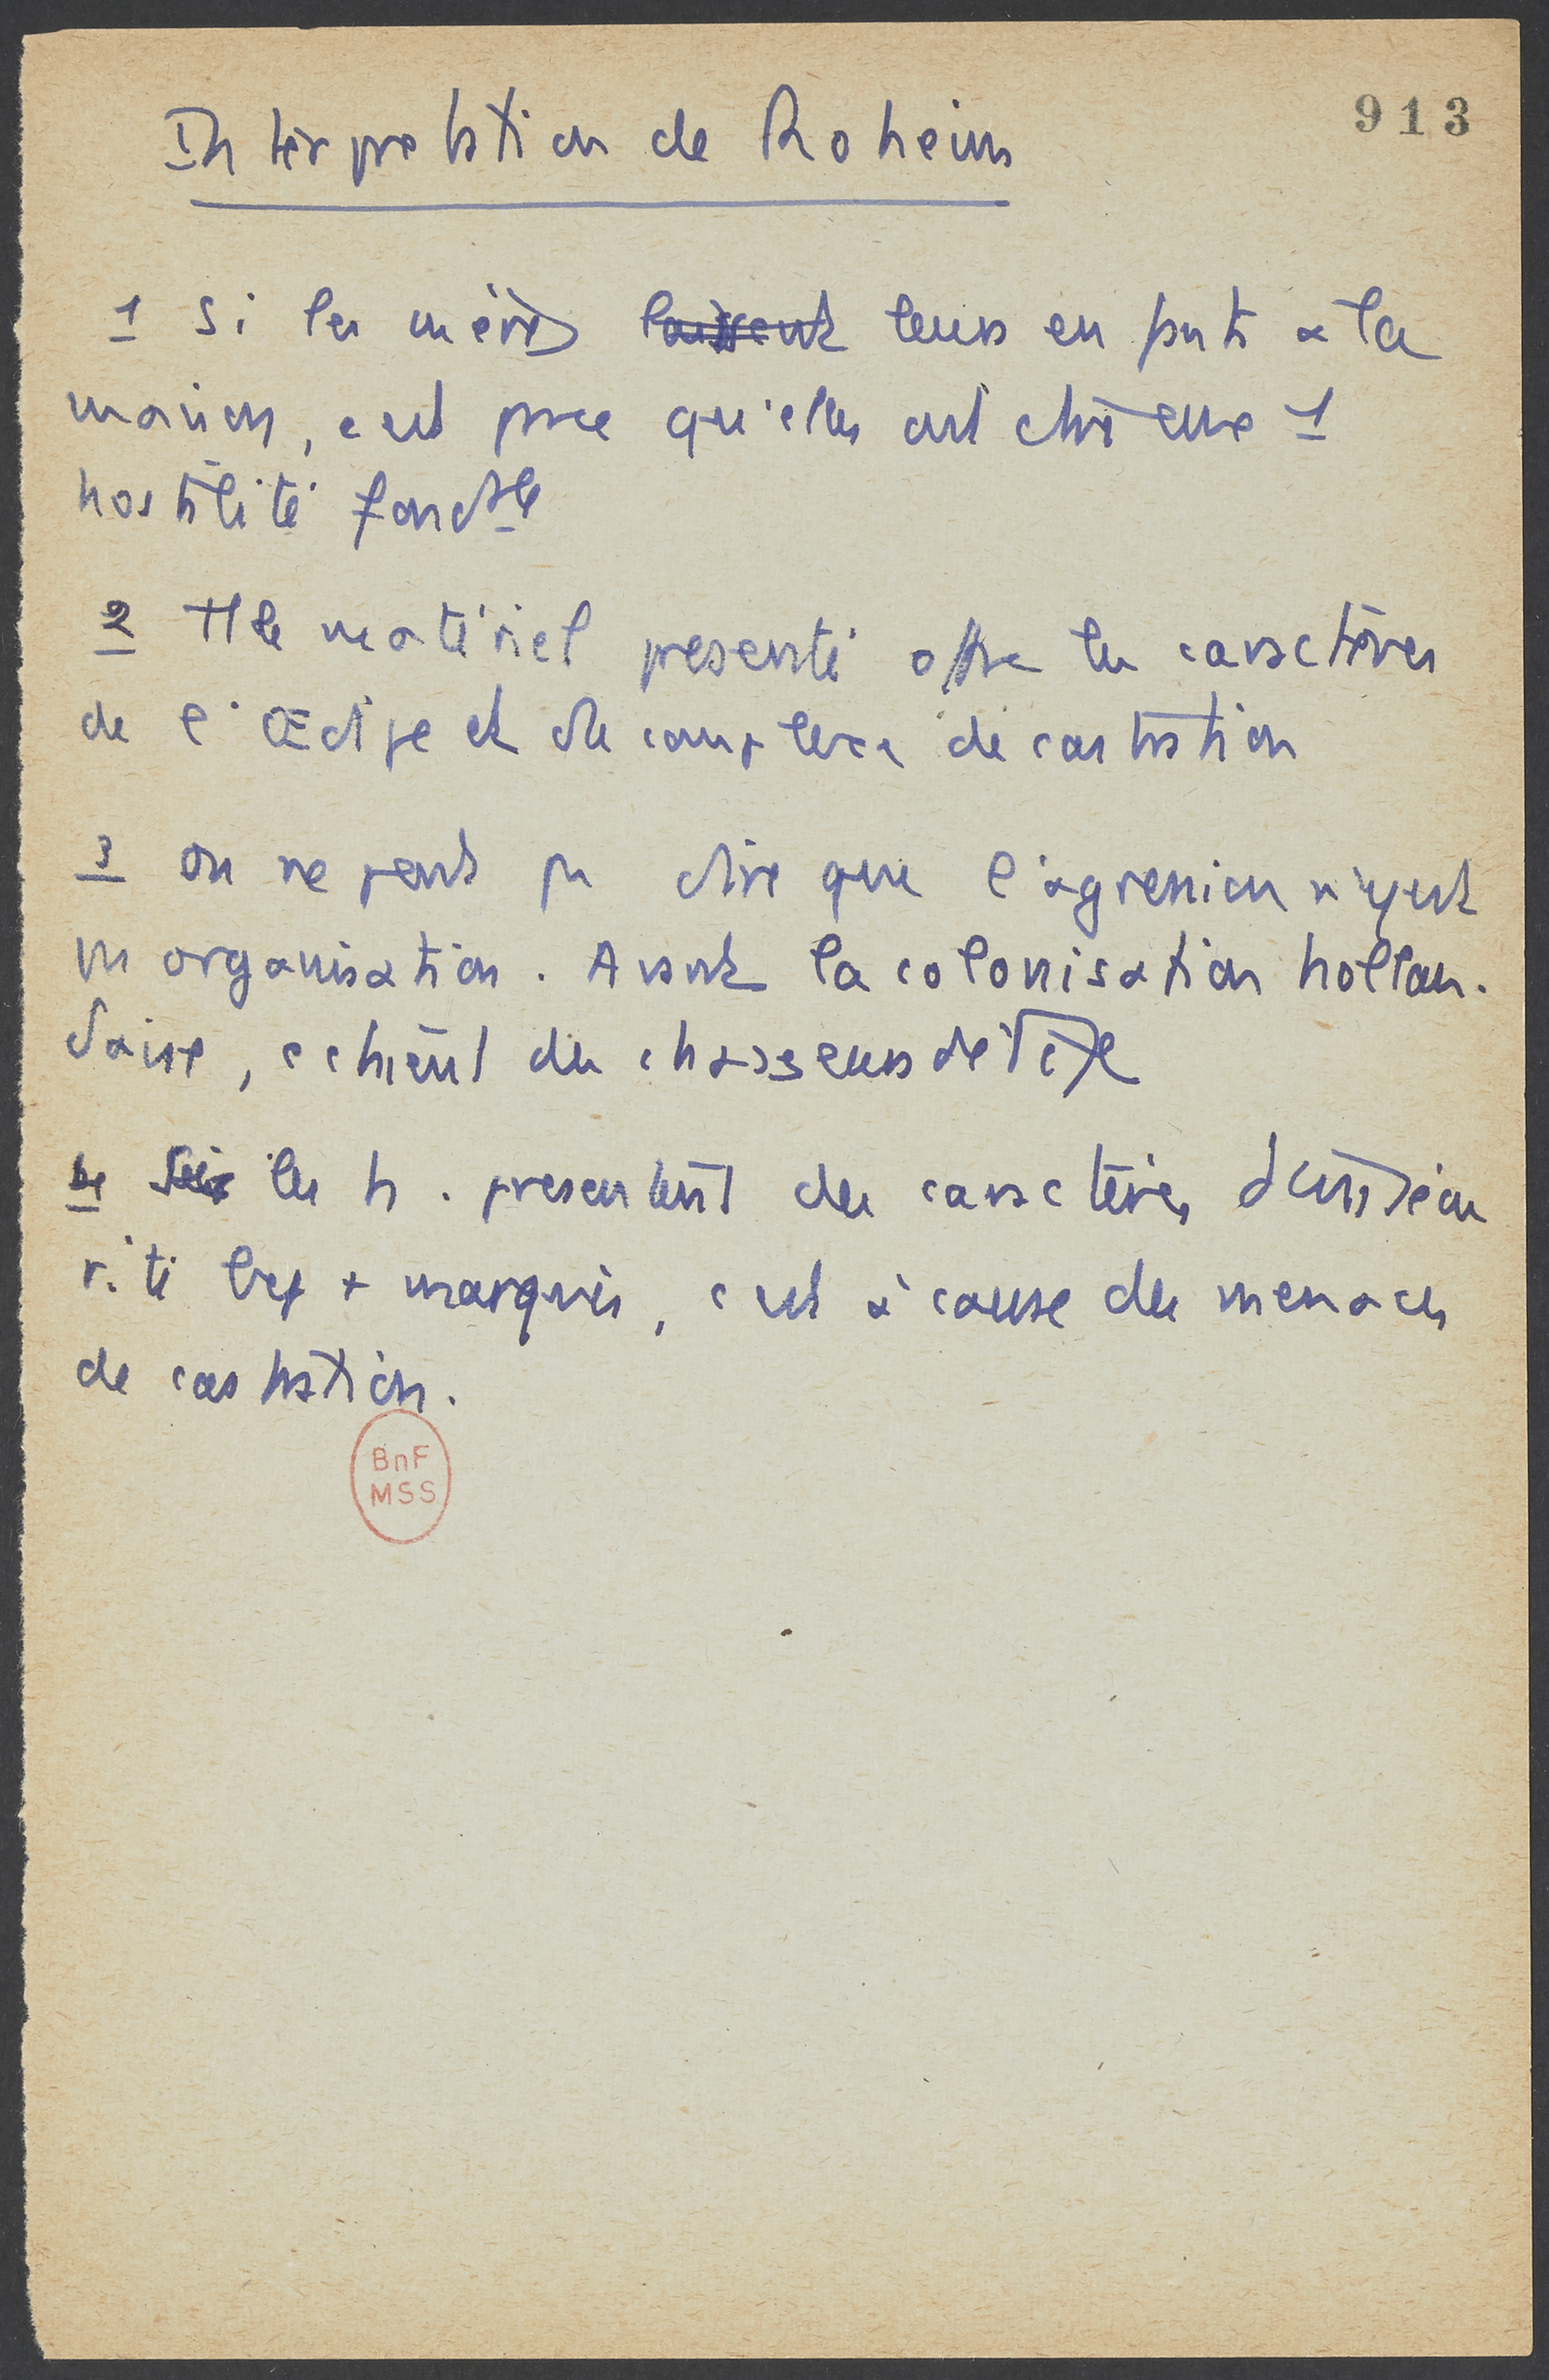 Interpretation de Roheim
913
1 Si les mères laissent leurs enfants à la
maison, c'est parce qu'elles ont chez elles 1
hostilité fondtle
2 Tt le matériel présenté offre les caractères
de l'Œdipe et du complexe de castration
3 On ne peut pas dire que l'agression n'y est
pas organisation. Avant la colonisation hollan-
daise, c'étaient des chasseurs de tête
4 Si les h. présentent des caractères d'infério
rité bcp + marqués, c'est à cause des menaces
de castration.
BnF
MSS